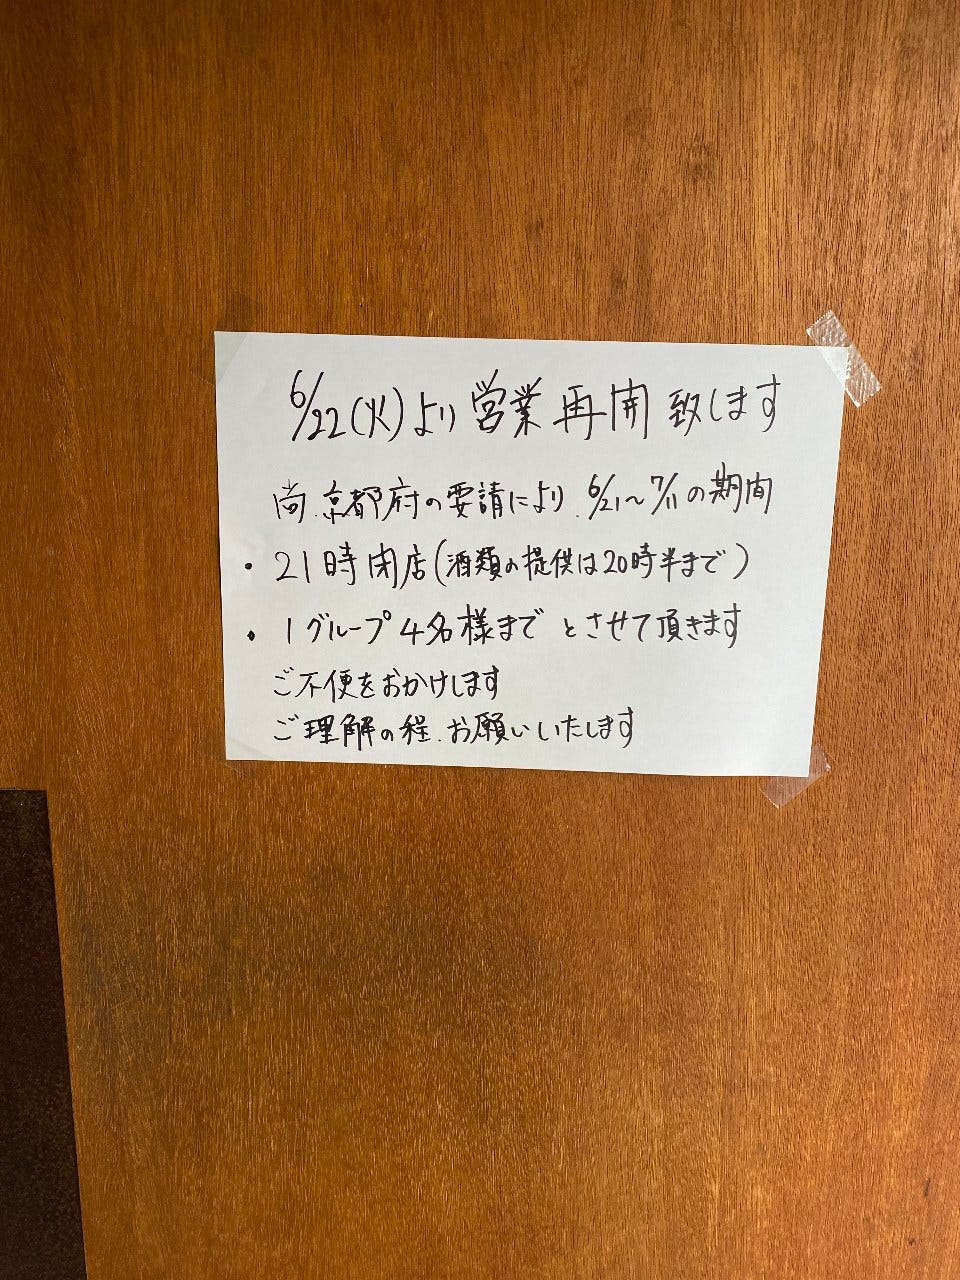 6/22(火)より営業再開致します
尚、京都府の要請により、6/21〜7/11の期間
・21時閉店(酒類の提供は20時半まで)
・1グループ4名様まで とさせて頂きます
ご不便をおかけします
ご理解の程、お願いいたします